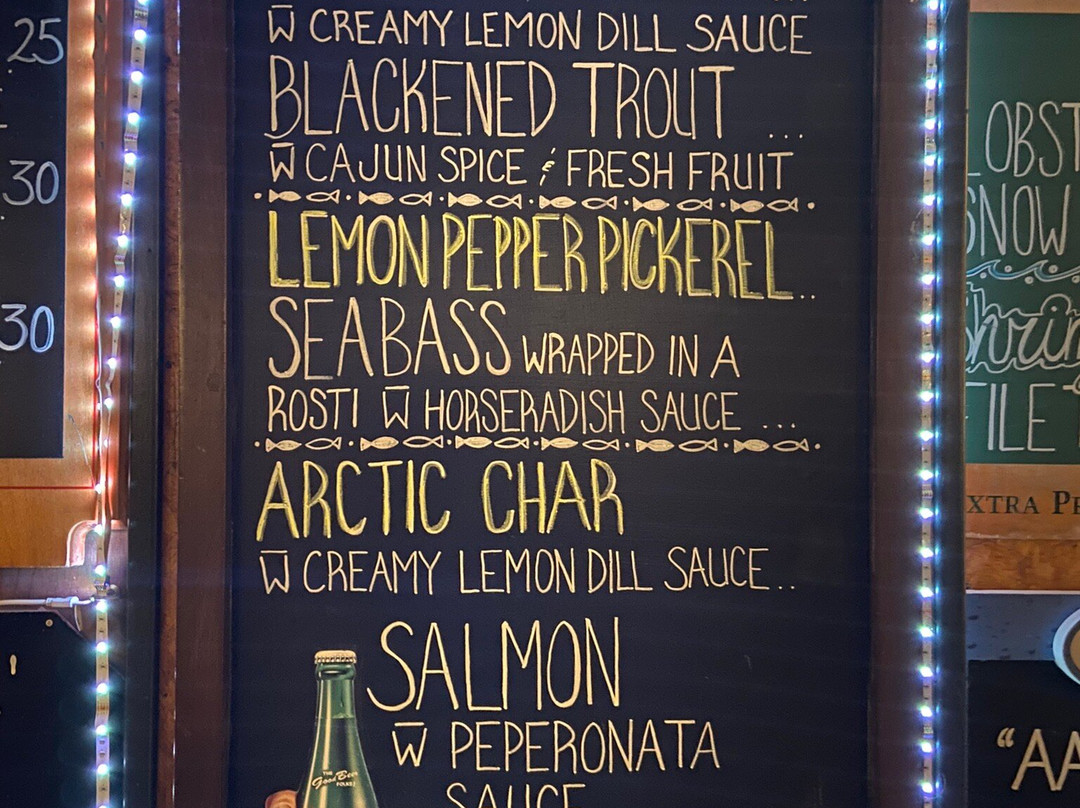 25
30
30
W̅ CREAMY LEMON DILL SAUCE
BLACKENED TROUT ...
W̅ CAJUN SPICE & FRESH FRUIT
LEMON PEPPER PICKEREL..
SEABASS WRAPPED IN A
ROSTI W̅ HORSERADISH SAUCE ...
ARCTIC CHAR
W̅ CREAMY LEMON DILL SAUCE..
SALMON
W̅ PEPERONATA
SAUCE
THE
Good Beer
FOLKS
LOBST
SNOW
Shrim
ILE
XTRA PE
"AA